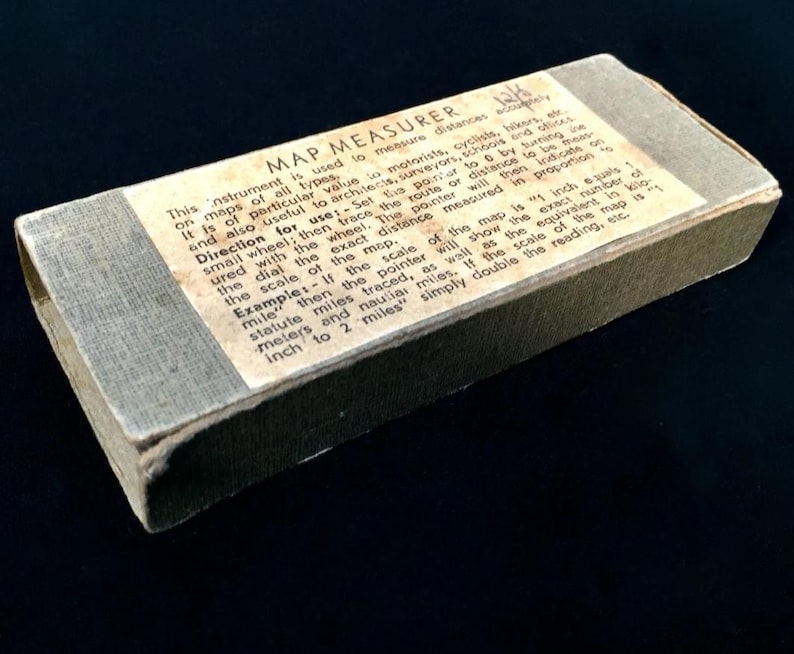 12/6
MAP MEASURER
This instrument is used to measure distances accurately
on maps of all types.
It is of particular value to motorists, cyclists, hikers, etc.
and also useful to architects, surveyors, schools and offices.
Direction for use:- Set the pointer to 0 by turning the
small wheel; then trace the route or distance to be meas-
ured with the wheel. The pointer will then indicate on
the dial the exact distance measured in proportion to
the scale of the map.
Example:- If the scale of the map is "1 inch equals 1
mile" then the pointer will show the exact number of
statute miles traced, as well as the equivalent in kilo-
meters and nautical miles. If the scale of the map is "1
inch to 2 miles" simply double the reading, etc.